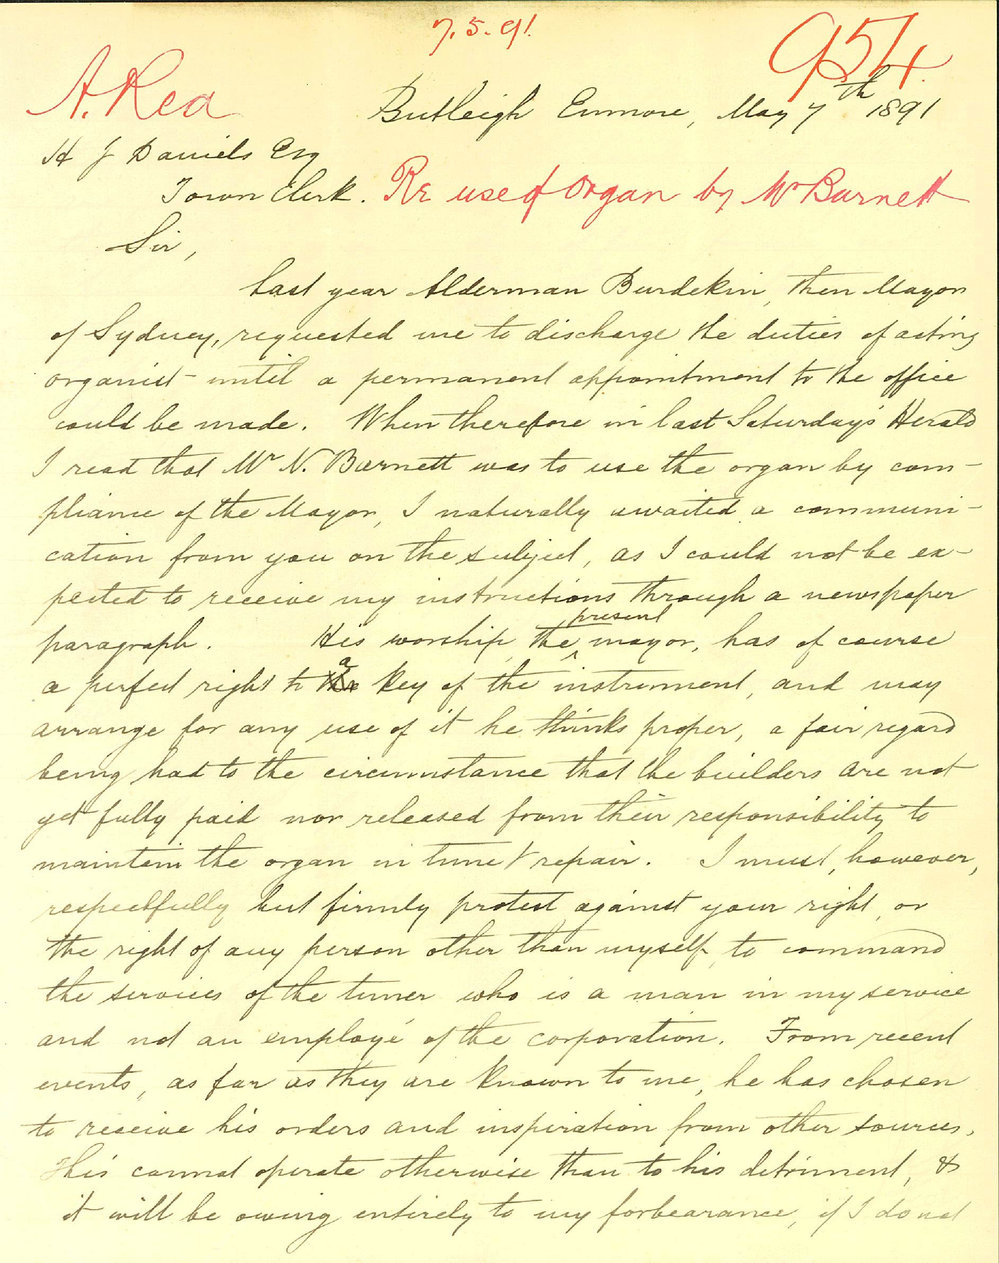 7.5.91.
954
A. Rea
Butleigh Enmore, May 7th 1891
H J Daniels Esq
Town Clerk. Re use of Organ by Mr Barnett
Sir,
Last year Alderman Burdekin, then Mayor
of Sydney, requested me to discharge the duties of acting
organist until a permanent appointment to the office
could be made. When therefore in last Saturday's Herald
I read that Mr N. Barnett was to use the organ by com-
pliance of the Mayor, I naturally awaited a communi-
cation from you on the subject, as I could not be ex-
pected to receive my instructions through a newspaper
paragraph. His worship, the present mayor, has of course
a perfect right to a key of the instrument, and may
arrange for any use of it he thinks proper, a fair regard
being had to the circumstance that the builders are not
yet fully paid nor released from their responsibility to
maintain the organ in tune & repair. I must, however,
respectfully but firmly protest against your right, or
the right of any person other than myself, to command
the services of the tuner who is a man in my service
and not an employé of the corporation. From recent
events, as far as they are known to me, he has chosen
to receive his orders and inspiration from other sources.
This cannot operate otherwise than to his detriment, &
it will be owing entirely to my forbearance, if I do not